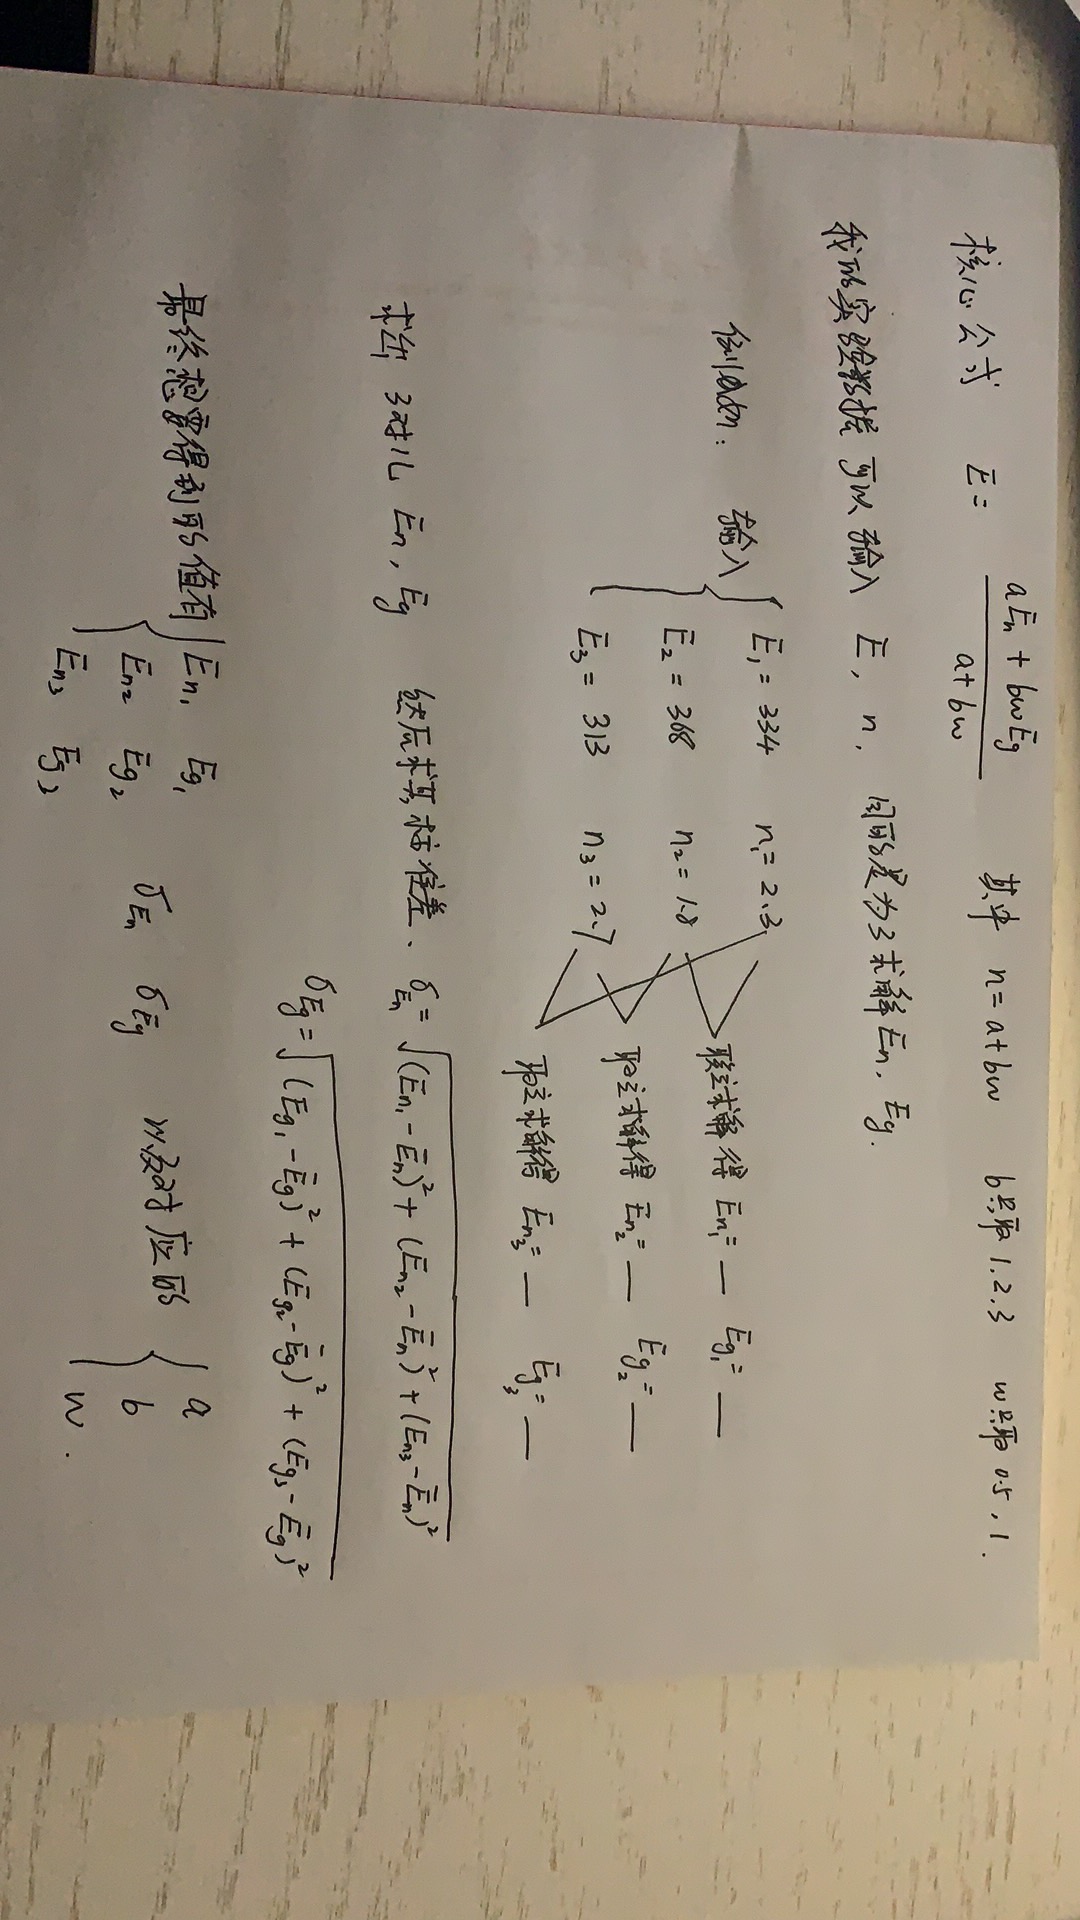 核心公式 E = (aEn + bwEg) / (a + bw) 其中 n = a + bw b只取 1.2.3 w只取 0.5, 1.
我的实验数据 可以 输入 E, n, 目的是为了求解 En, Eg.
例如: 输入 { E₁ = 334 n₁ = 2.3
E₂ = 368 n₂ = 1.8
E₃ = 313 n₃ = 2.7
联立求解 得 En₁ = __ Eg₁ = __
联立求解得 En₂ = __ Eg₂ = __
联立求解得 En₃ = __ Eg₃ = __
求出 3对儿 En, Eg 然后求其标准差. σEn = √((En₁ - E̅n)² + (En₂ - E̅n)² + (En₃ - E̅n)²)
σEg = √((Eg₁ - E̅g)² + (Eg₂ - E̅g)² + (Eg₃ - E̅g)²)
最终想要得到的值有 { En₁ Eg₁
En₂ Eg₂
En₃ Eg₃
σEn σEg 以及对应的 { a
b
w.